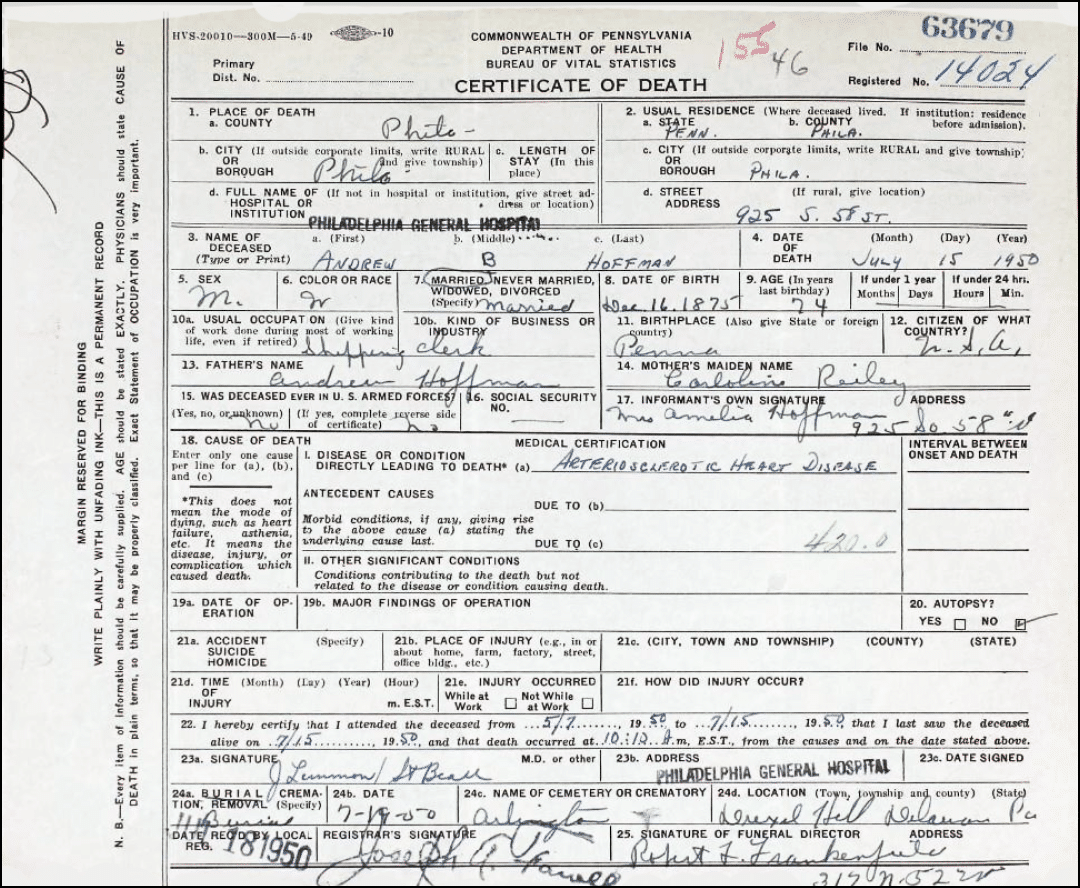 HVS-20010—300M—5-49 -10
COMMONWEALTH OF PENNSYLVANIA
DEPARTMENT OF HEALTH
BUREAU OF VITAL STATISTICS
CERTIFICATE OF DEATH
Primary
Dist. No.
155 46
File No. 63679
Registered No. 14024
MARGIN RESERVED FOR BINDING
WRITE PLAINLY WITH UNFADING INK—THIS IS A PERMANENT RECORD
N. B.—Every item of Information should be carefully supplied. AGE should be stated EXACTLY. PHYSICIANS should state CAUSE OF
DEATH in plain terms, so that it may be properly classified. Exact Statement of OCCUPATION is very important.
1. PLACE OF DEATH
a. COUNTY Phila-
2. USUAL RESIDENCE (Where deceased lived. If institution: residence
before admission).
a. STATE b. COUNTY
PENN. PHILA.
b. CITY (If outside corporate limits, write RURAL
OR and give township)
BOROUGH Phila
c. LENGTH OF
STAY (In this
place)
c. CITY (If outside corporate limits, write RURAL and give township)
OR
BOROUGH PHILA.
d. FULL NAME OF (If not in hospital or institution, give street ad-
HOSPITAL OR dress or location)
INSTITUTION
PHILADELPHIA GENERAL HOSPITAL
d. STREET (If rural, give location)
ADDRESS
925 S. 58 ST.
3. NAME OF
DECEASED
(Type or Print)
a. (First) b. (Middle) c. (Last)
ANDREW B HOFFMAN
4. DATE
OF
DEATH
(Month) (Day) (Year)
JULY 15 1950
5. SEX
M.
6. COLOR OR RACE
W
7. MARRIED, NEVER MARRIED,
WIDOWED, DIVORCED
(Specify) Married
8. DATE OF BIRTH
Dec. 16. 1875
9. AGE (In years
last birthday)
74
If under 1 year
Months Days
If under 24 hrs.
Hours Min.
10a. USUAL OCCUPATION (Give kind
of work done during most of working
life, even if retired) Shipping
10b. KIND OF BUSINESS OR
INDUSTRY
clerk
11. BIRTHPLACE (Also give State or foreign
country)
Penna
12. CITIZEN OF WHAT
COUNTRY?
U.S.A.
13. FATHER'S NAME
Andrew Hoffman
14. MOTHER'S MAIDEN NAME
Carloline Reiley
15. WAS DECEASED EVER IN U. S. ARMED FORCES?
(Yes, no, or unknown) (If yes, complete reverse side
of certificate)
No No
16. SOCIAL SECURITY
NO.
17. INFORMANT'S OWN SIGNATURE ADDRESS
Mrs Amelia Hoffman
925 So. 58"
18. CAUSE OF DEATH
Enter only one cause
per line for (a), (b),
and (c)
*This does not
mean the mode of
dying, such as heart
failure, asthenia,
etc. It means the
disease, injury, or
complication which
caused death.
MEDICAL CERTIFICATION
I. DISEASE OR CONDITION
DIRECTLY LEADING TO DEATH* (a) ARTERIOSCLEROTIC HEART DISEASE
ANTECEDENT CAUSES
DUE TO (b)
Morbid conditions, if any, giving rise
to the above cause (a) stating the
underlying cause last.
DUE TO (c) 420.0
II. OTHER SIGNIFICANT CONDITIONS
Conditions contributing to the death but not
related to the disease or condition causing death.
INTERVAL BETWEEN
ONSET AND DEATH
19a. DATE OF OP-
ERATION
19b. MAJOR FINDINGS OF OPERATION
20. AUTOPSY?
YES NO
21a. ACCIDENT (Specify)
SUICIDE
HOMICIDE
21b. PLACE OF INJURY (e.g., in or
about home, farm, factory, street,
office bldg., etc.)
21c. (CITY, TOWN AND TOWNSHIP) (COUNTY) (STATE)
21d. TIME (Month) (Day) (Year) (Hour)
OF
INJURY m. E.S.T.
21e. INJURY OCCURRED
While at Not While
Work at Work
21f. HOW DID INJURY OCCUR?
22. I hereby certify that I attended the deceased from 5/7, 1950 to 7/15, 1950, that I last saw the deceased
alive on 7/15, 1950, and that death occurred at 10:10 A.m, E.S.T., from the causes and on the date stated above.
23a. SIGNATURE M.D. or other
J Lemmon/
23b. ADDRESS
PHILADELPHIA GENERAL HOSPITAL
23c. DATE SIGNED
24a. BURIAL, CREMA-
TION, REMOVAL (Specify)
Burial
24b. DATE
7-19-50
24c. NAME OF CEMETERY OR CREMATORY
Arlington
24d. LOCATION (Town, township and county) (State)
Drexel Hill Delaware Pa
DATE REC'D BY LOCAL
REG.
18 1950
REGISTRAR'S SIGNATURE
Joseph
25. SIGNATURE OF FUNERAL DIRECTOR ADDRESS
Robert L. Frankenfield
317 N. 52